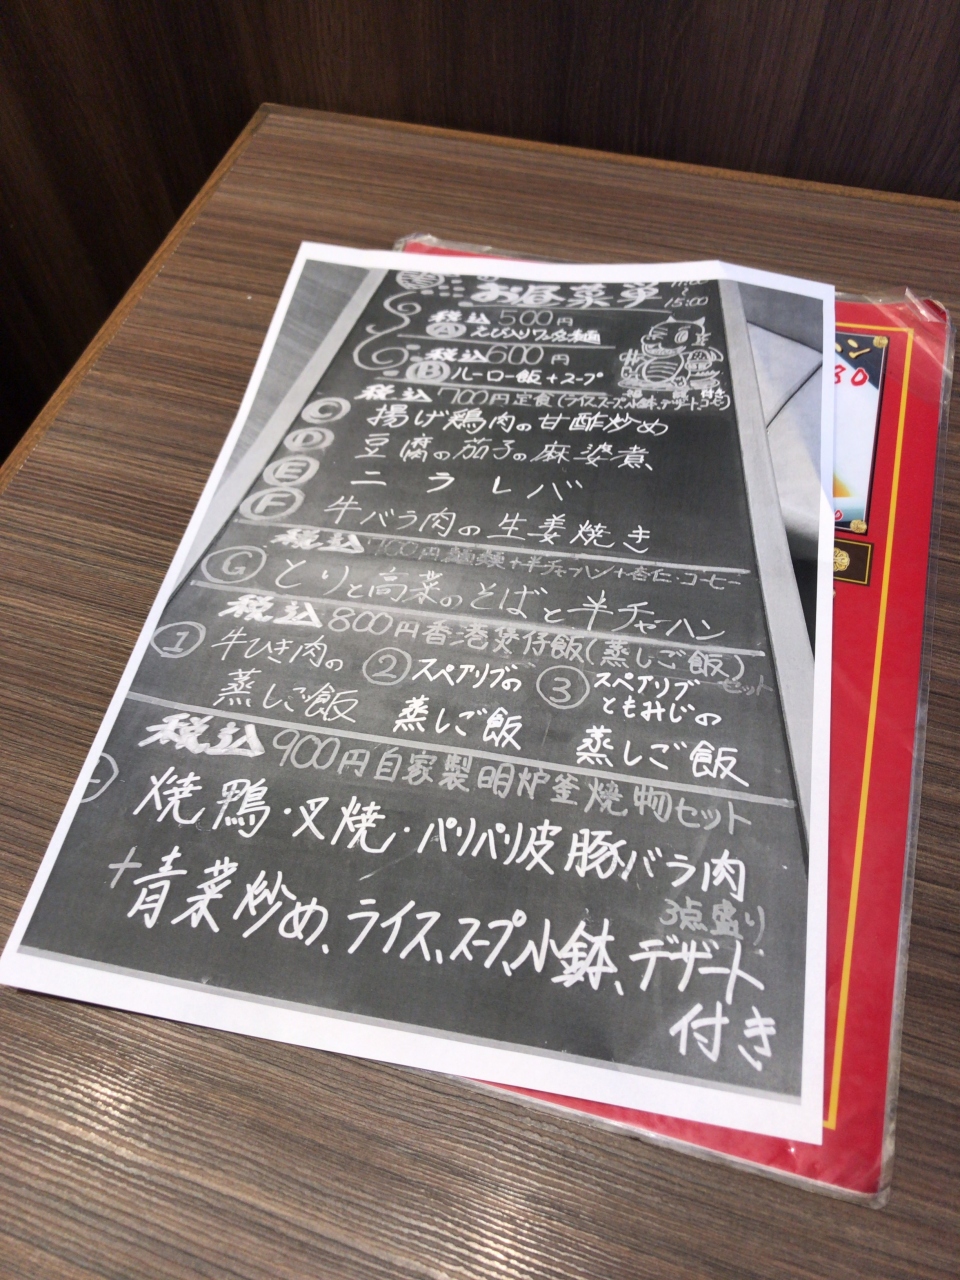 お昼菜單
15:00
税込500円
Ⓐ えび入りワンタン麺
税込600円
Ⓑ ルーロー飯+スープ
税込700円定食(ライス、スープ、小鉢、デザート、コーヒー付き)
Ⓒ 揚げ鶏肉の甘酢炒め
Ⓓ 豆腐の茄子の麻婆煮
Ⓔ ニラレバ
Ⓕ 牛バラ肉の生姜焼き
税込700円麺類+半チャーハン+杏仁・コーヒー
Ⓖ とりと高菜のそばと半チャーハン
税込800円香港煲仔飯(蒸しご飯)セット
① 牛ひき肉の蒸しご飯
② スペアリブの蒸しご飯
③ スペアリブともみじの蒸しご飯
税込900円自家製明炉釜焼物セット
焼鴨・叉焼・パリパリ皮豚バラ肉
3点盛り
+青菜炒め、ライス、スープ、小鉢、デザート
付き